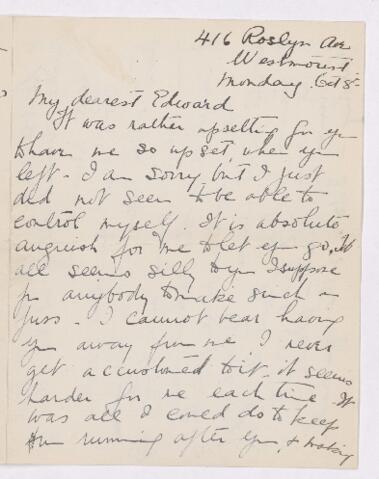 416 Roslyn Ave
Westmount
Monday Oct 8-
My dearest Edward
It was rather upsetting for you
to have me so upset, when you
left - I am sorry but I just
did not seem to be able to
control myself. It is absolute
anguish for me to let you go. It
all seems silly to you I suppose
for anybody to make such a
fuss - I cannot bear having
you away from me I never
get accustomed to it. it seems
harder for me each time It
was all I could do to keep
from running after you, &